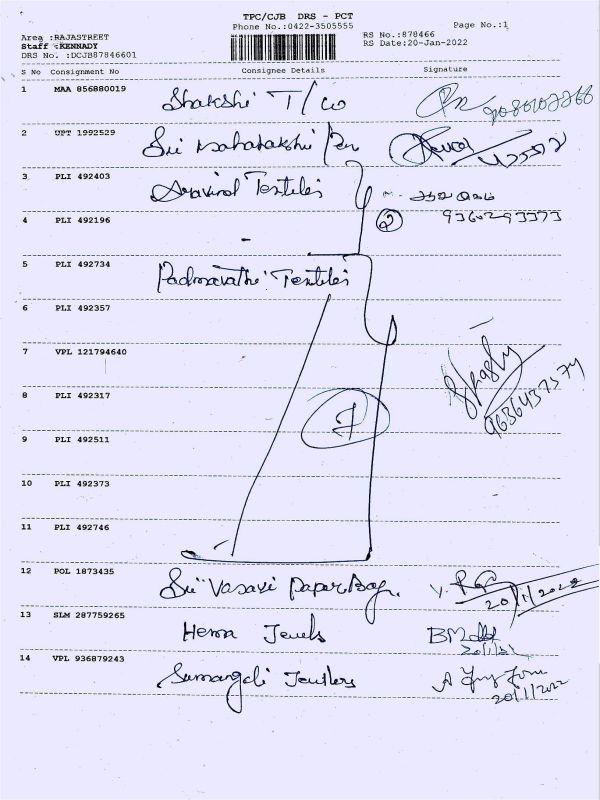 TPC/CJB DRS - PCT
Phone No.:0422-3505555
Page No.:1
Area :RAJASTREET
Staff :KENNADY
DRS No. :DCJB87846601
RS No.:878466
RS Date:20-Jan-2022
S No Consignment No Consignee Details Signature
1 MAA 856880019 Shakshi T/co
2 UPT 1992529 Sri Mahalakshi
3 PLI 492403 Aravind Textiles
4 PLI 492196 2 9360293373
5 PLI 492734 Padmavathi Textiles
6 PLI 492357
7 VPL 121794640
8 PLI 492317 7
9 PLI 492511 9636437574
10 PLI 492373
11 PLI 492746
12 POL 1873435 Sri Vasavi Paper Bag. 20/1/2022
13 SLM 287759265 Hema Jewels 20/1/22
14 VPL 936879243 Sumangali Jewllers 20/1/2022